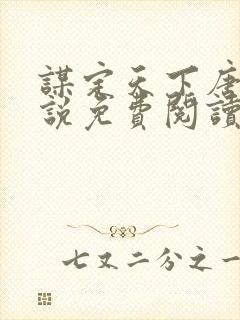 謀定天下唐
說免費閱讀
七又二分之一